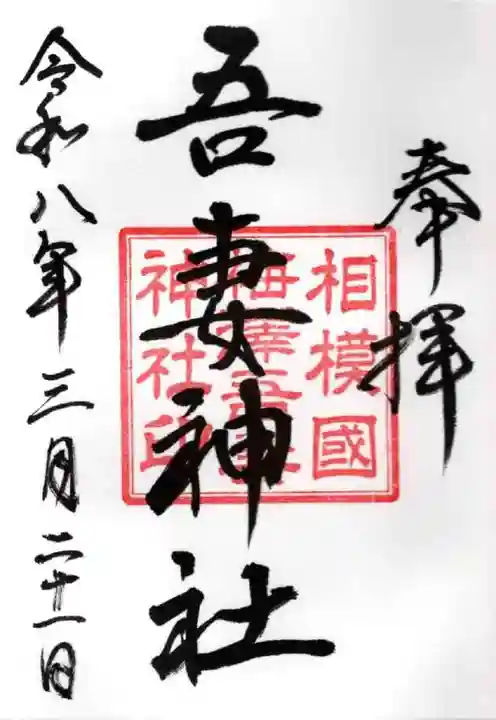 奉拝
相模國
梅澤吾妻
神社印
吾妻神社
令和八年三月二十一日